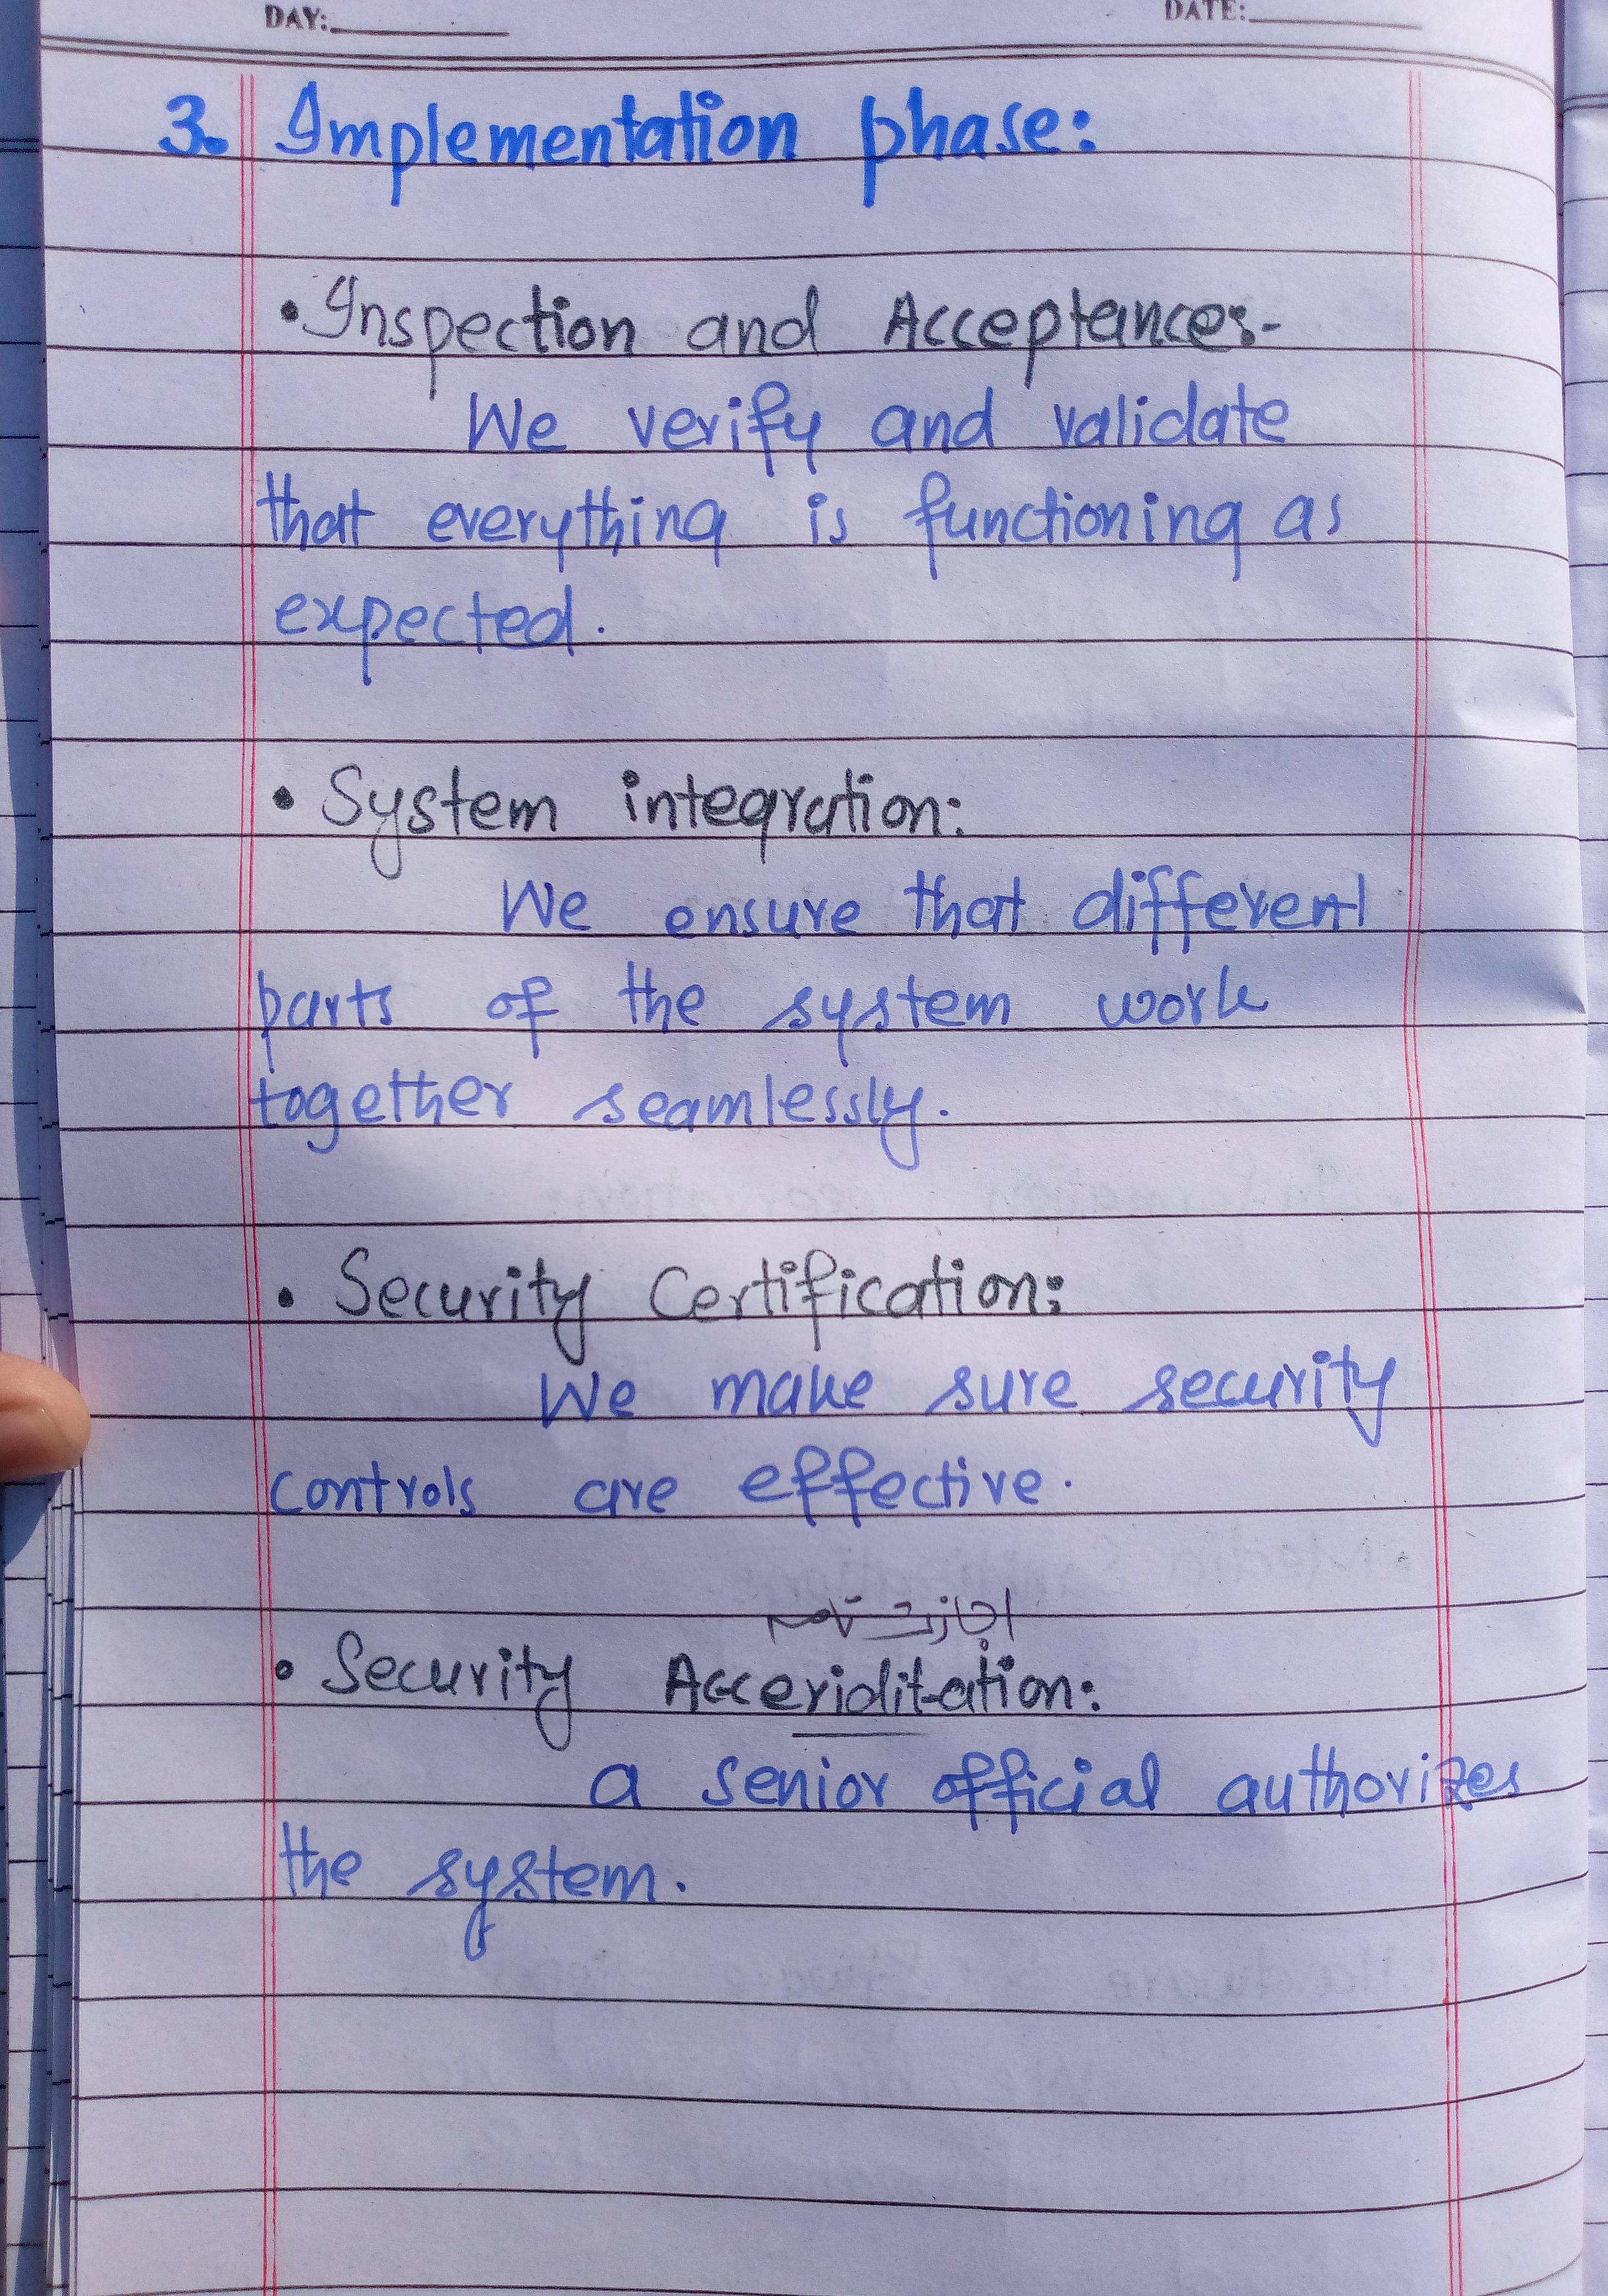 DAY: DATE:
3. Implementation phase:
• Inspection and Acceptance:-
We verify and validate
that everything is functioning as
expected.
• System integration:
We ensure that different
parts of the system work
together seamlessly.
• Security Certification:
We make sure security
controls are effective.
اجازت نامہ
• Security Acceriditation:
a senior official authorizes
the system.